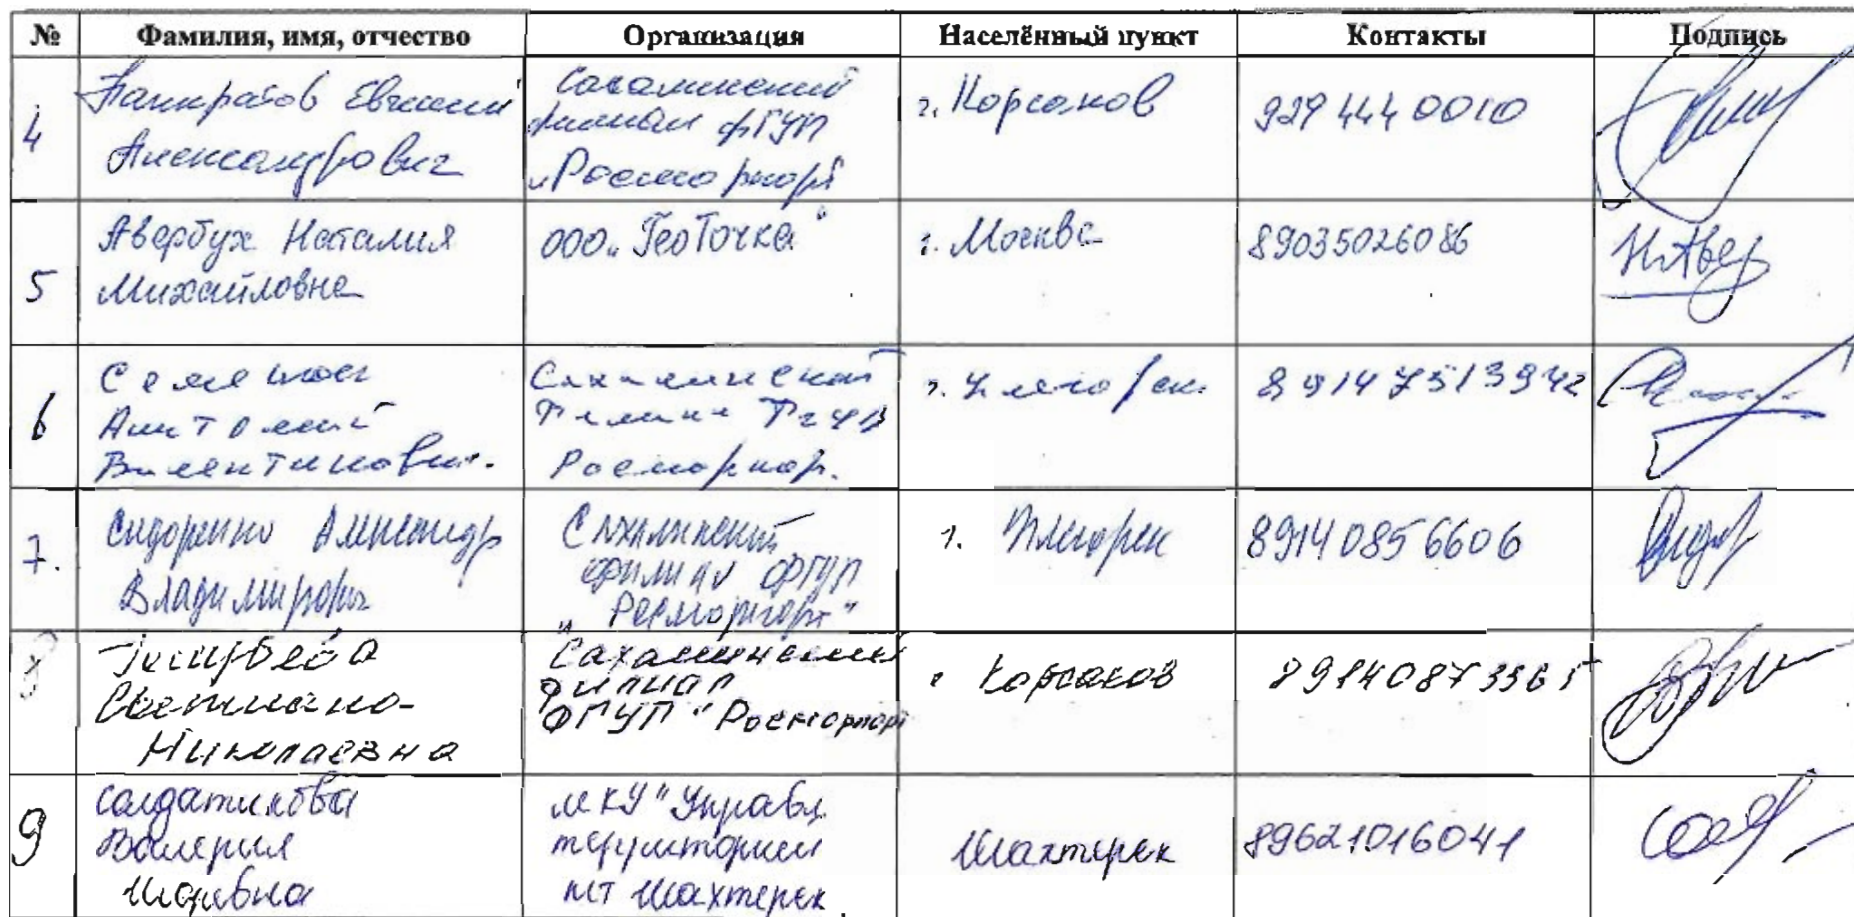 № Фамилия, имя, отчество Организация Населённый пункт Контакты Подпись
4 Панкратов Евгений Александрович
Сахалинский филиал ФГУП „Росморпорт"
г. Корсаков
929 444 0010
5 Авербух Наталия Михайловна
ООО „ГеоТочка"
г. Москва
89035026086
Н.Авер
6 Анатолий Валентинович.
Сахалинский Филиал ФГУП Росморпорт.
г. Углегорск
89147513942
7. Сидоренко Александр Владимирович
Сахалинский филиал ФГУП „Росморпорт"
г. Углегорск
89140856606
8 Светлана Николаевна
Сахалинский филиал ФГУП "Росморпорт
г Корсаков
89140873365
9 Солдатикова Валерия
МКУ "Управл территорией пгт Шахтерск
Шахтерск
89621016041